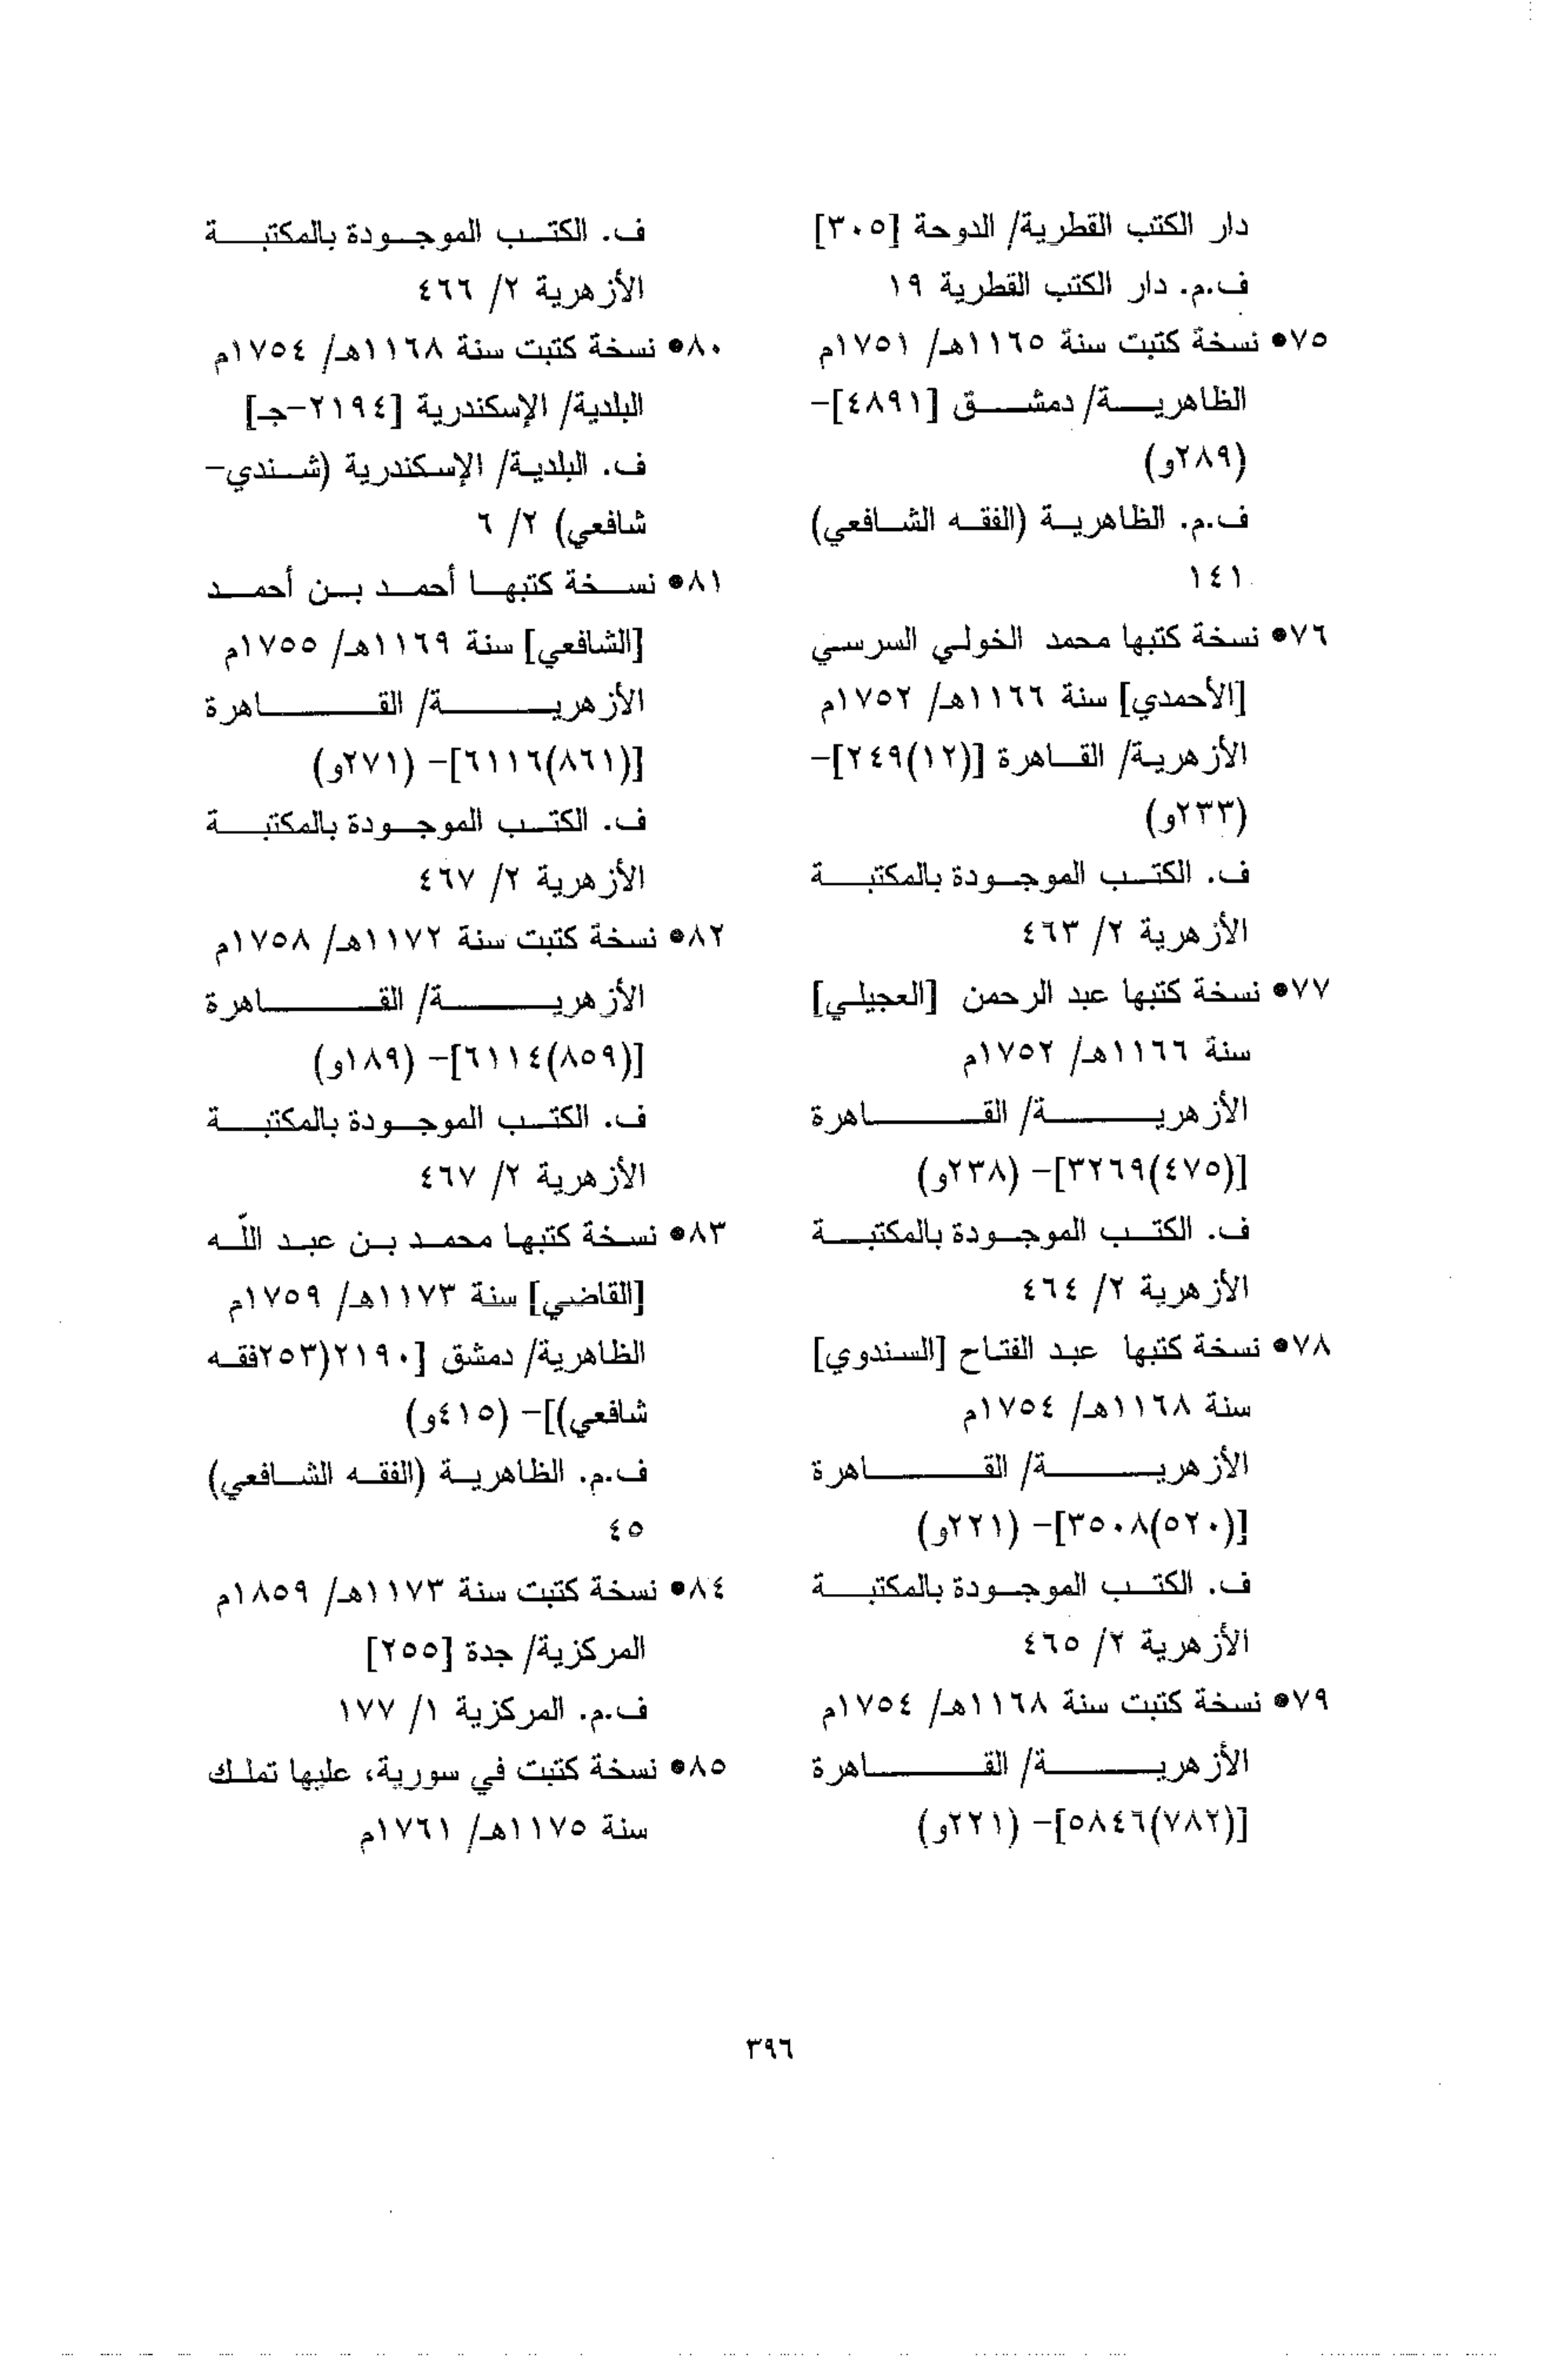 دار الكتب القطرية/ الدوحة [٣٠٥]
ف.م. دار الكتب القطرية ١٩
٧٥• نسخة كتبت سنة ١١٦٥هـ/ ١٧٥١م
الظاهرية/ دمشق [٤٨٩١]-
(٢٨٩و)
ف.م. الظاهرية (الفقه الشافعي)
١٤١
٧٦• نسخة كتبها محمد الخولي السرسي
[الأحمدي] سنة ١١٦٦هـ/ ١٧٥٢م
الأزهرية/ القاهرة [(١٢)٢٤٩]-
(٢٣٣و)
ف. الكتب الموجودة بالمكتبة
الأزهرية ٢/ ٤٦٣
٧٧• نسخة كتبها عبد الرحمن [العجيلي]
سنة ١١٦٦هـ/ ١٧٥٢م
الأزهرية/ القاهرة
[(٤٧٥)٣٢٦٩]- (٢٣٨و)
ف. الكتب الموجودة بالمكتبة
الأزهرية ٢/ ٤٦٤
٧٨• نسخة كتبها عبد الفتاح [السندوي]
سنة ١١٦٨هـ/ ١٧٥٤م
الأزهرية/ القاهرة
[(٥٢٠)٣٥٠٨]- (٢٢١و)
ف. الكتب الموجودة بالمكتبة
الأزهرية ٢/ ٤٦٥
٧٩• نسخة كتبت سنة ١١٦٨هـ/ ١٧٥٤م
الأزهرية/ القاهرة
[(٧٨٢)٥٨٤٦]- (٢٢١و)
ف. الكتب الموجودة بالمكتبة
الأزهرية ٢/ ٤٦٦
٨٠• نسخة كتبت سنة ١١٦٨هـ/ ١٧٥٤م
البلدية/ الإسكندرية [٢١٩٤-جـ]
ف. البلدية/ الإسكندرية (شندي-
شافعي) ٢/ ٦
٨١• نسخة كتبها أحمد بن أحمد
[الشافعي] سنة ١١٦٩هـ/ ١٧٥٥م
الأزهرية/ القاهرة
[(٨٦١)٦١١٦]- (٢٧١و)
ف. الكتب الموجودة بالمكتبة
الأزهرية ٢/ ٤٦٧
٨٢• نسخة كتبت سنة ١١٧٢هـ/ ١٧٥٨م
الأزهرية/ القاهرة
[(٨٥٩)٦١١٤]- (١٨٩و)
ف. الكتب الموجودة بالمكتبة
الأزهرية ٢/ ٤٦٧
٨٣• نسخة كتبها محمد بن عبد اللّه
[القاضي] سنة ١١٧٣هـ/ ١٧٥٩م
الظاهرية/ دمشق [٢١٩٠(٢٥٣فقه
شافعي)]- (٤١٥و)
ف.م. الظاهرية (الفقه الشافعي)
٤٥
٨٤• نسخة كتبت سنة ١١٧٣هـ/ ١٨٥٩م
المركزية/ جدة [٢٥٥]
ف.م. المركزية ١/ ١٧٧
٨٥• نسخة كتبت في سورية، عليها تملك
سنة ١١٧٥هـ/ ١٧٦١م
٣٩٦